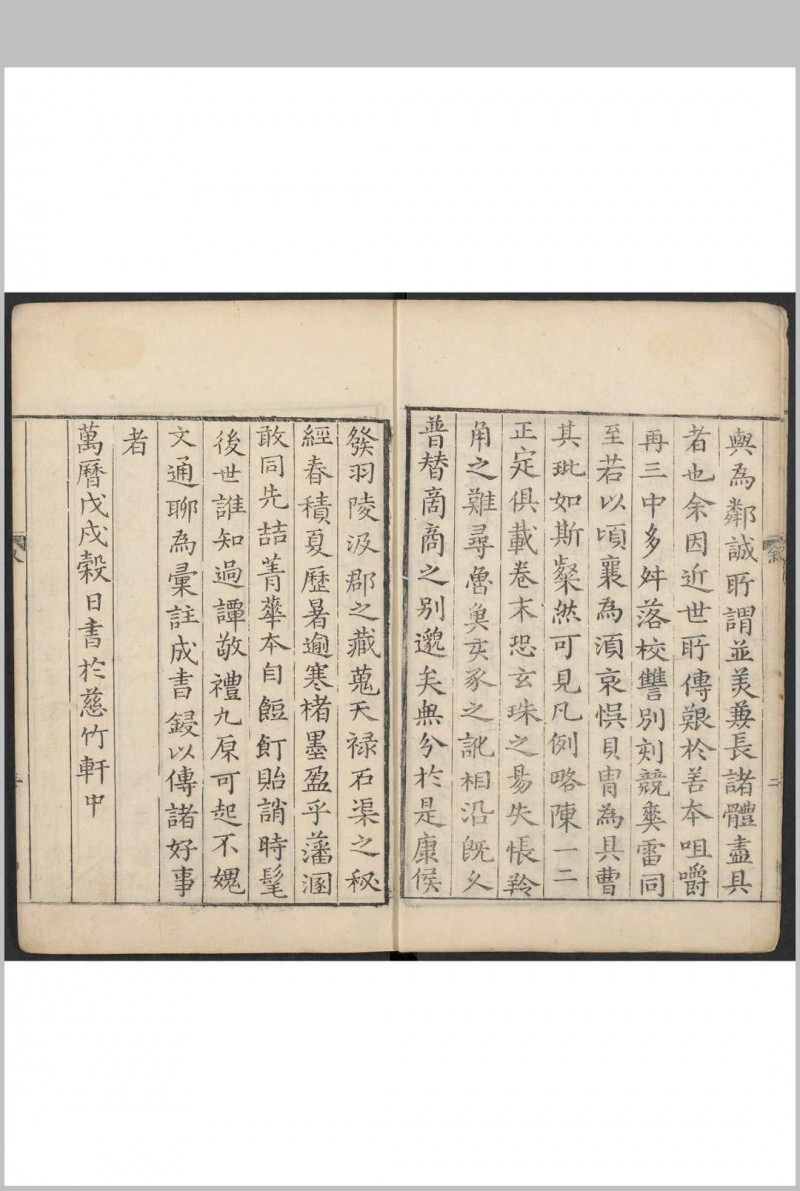 與為鄰誠所謂並美兼長諸體盡具
者也余因近世所傳艱於善本咀嚼
再三中多舛落校讐別刻競奕雷同
至若以頃襄為湏哀悞貝胄為具曹
其玼如斯粲然可見凡例略陳一二
正定俱載卷末恐玄珠之昜失悵羚
角之難尋魯𩵋亥豕之訛相沿既久
普替啇商之别邈矣無分於是康候
發羽陵汲郡之藏蒐天禄石渠之秘
經春積夏歷暑逾寒楮墨盈乎藩溷
敢同先喆菁華夲自餖飣貽誚時髦
後世誰知過譚敬禮九原可起不媿
文通聊為彙註成書鋟以傳諸好事
者
萬曆戊戌穀日書於慈竹軒中